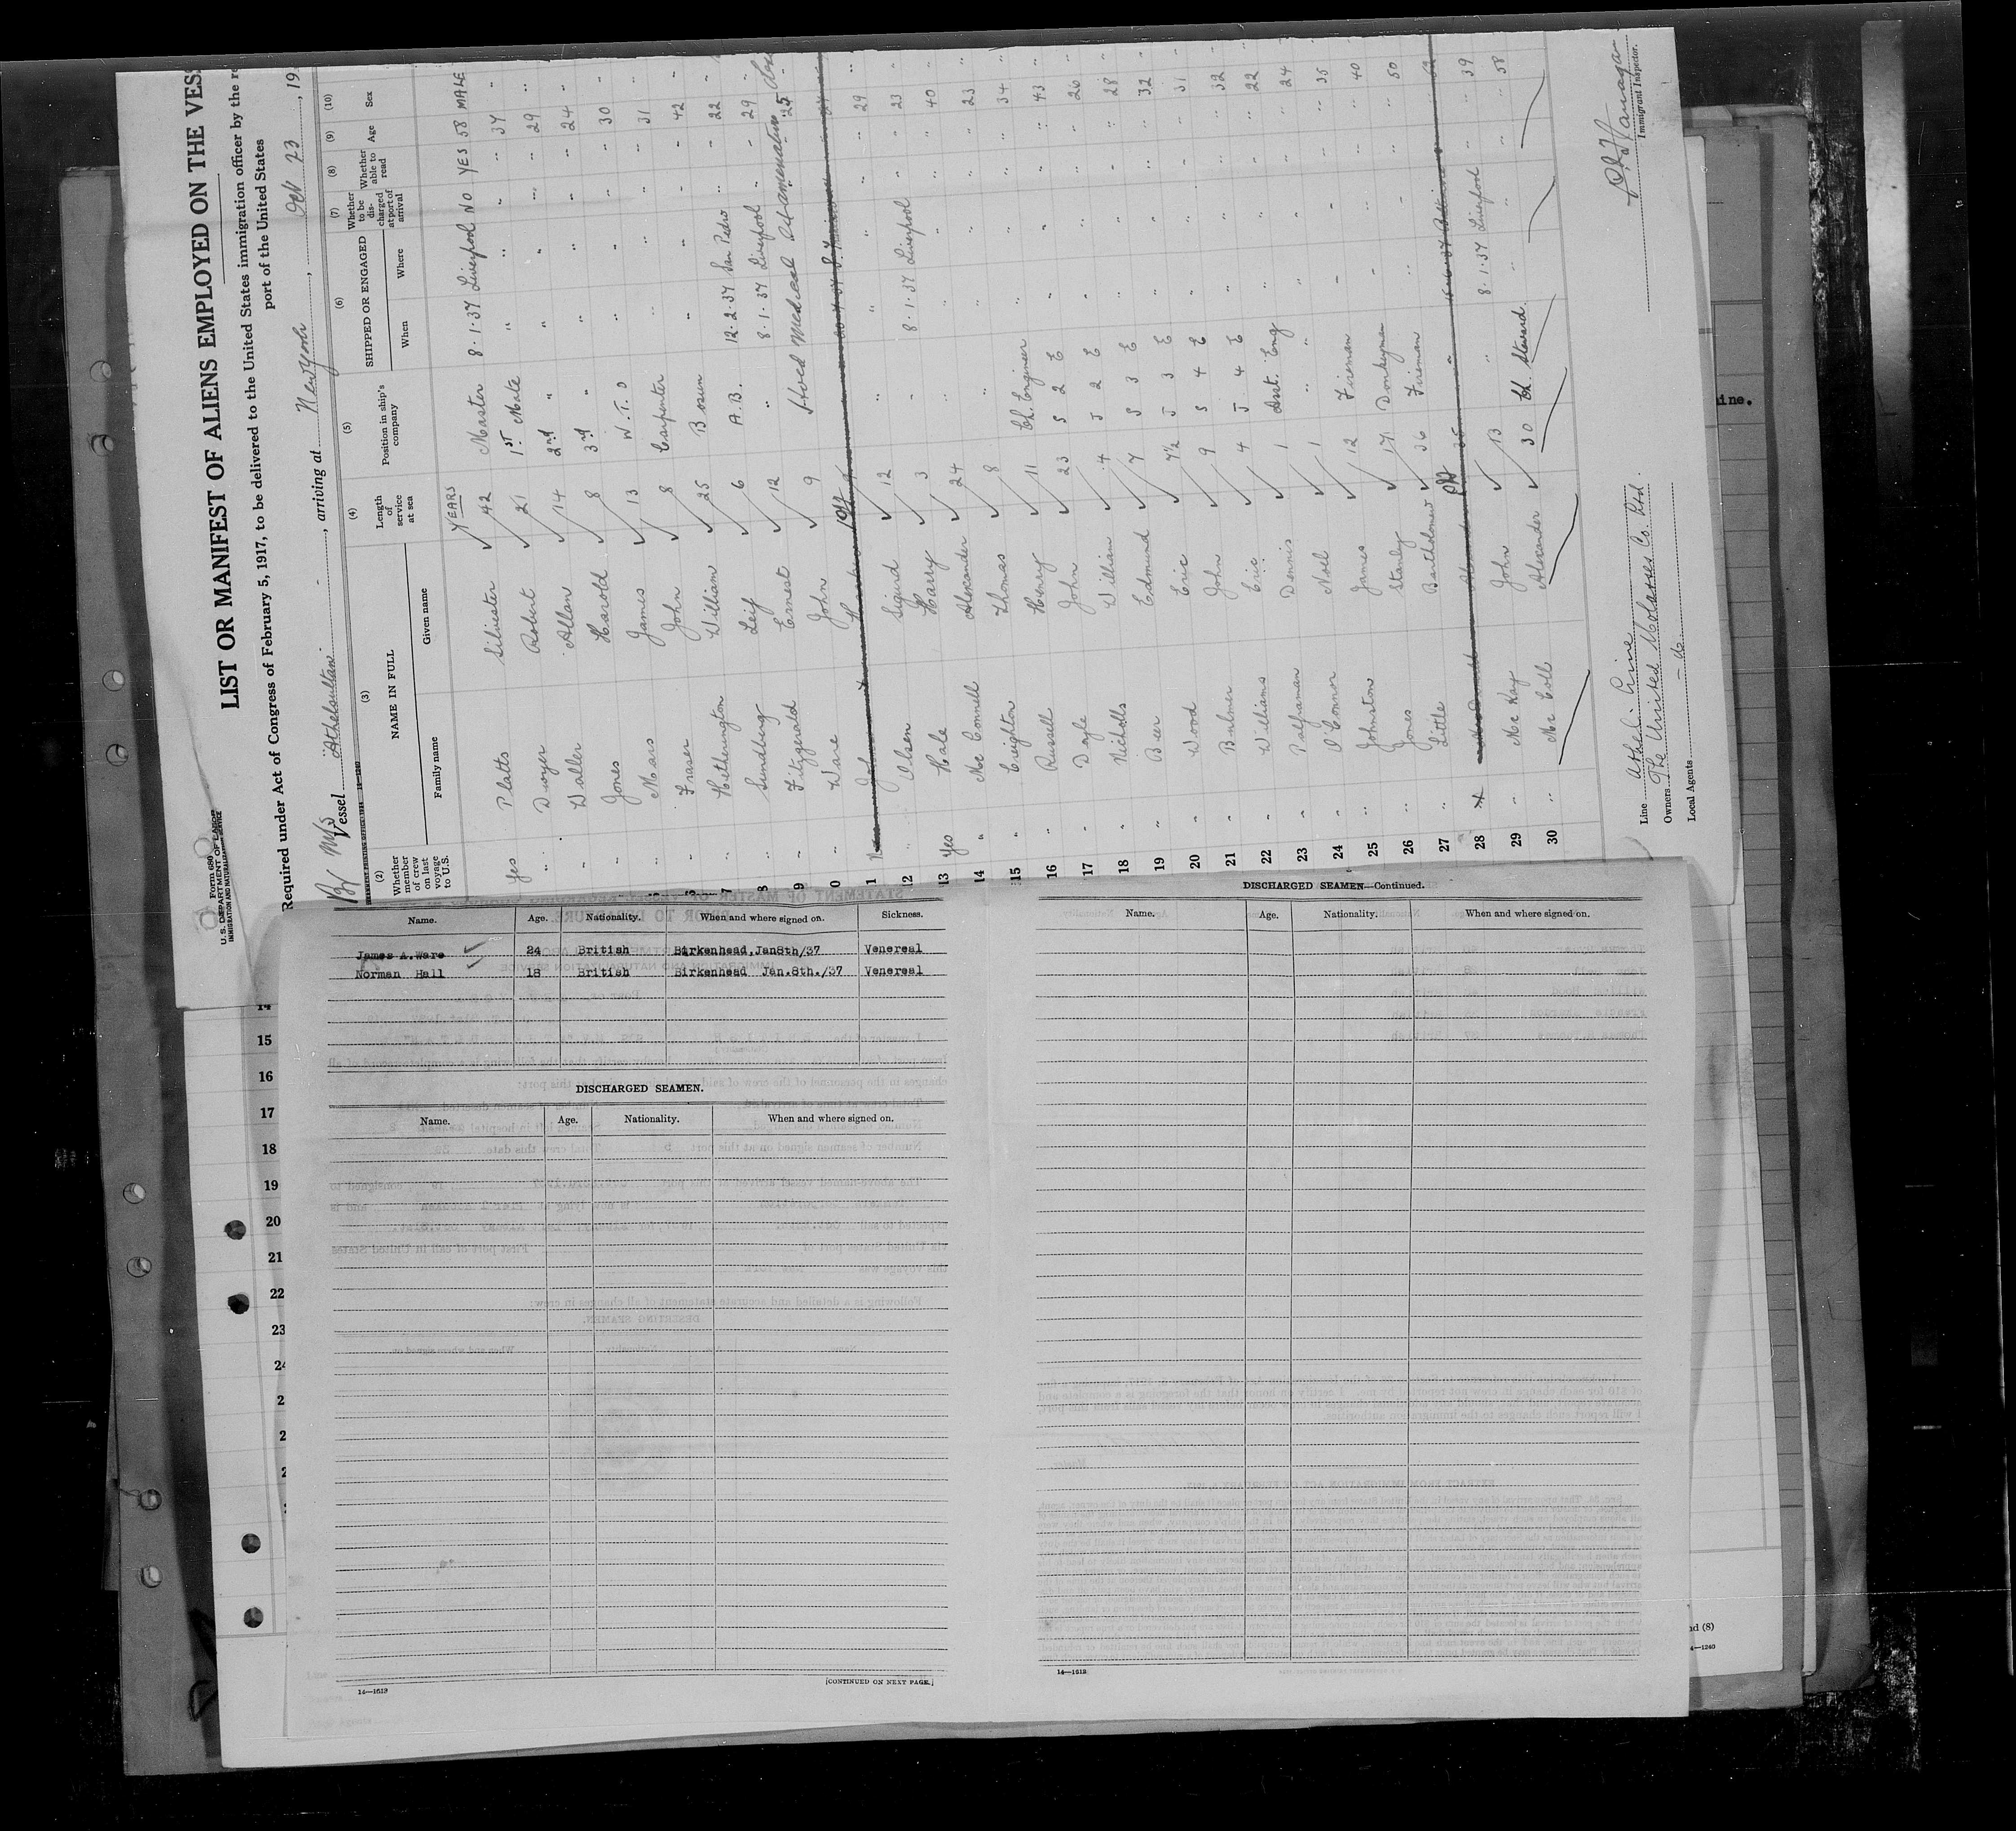 Form 680
U. S. DEPARTMENT OF LABOR
IMMIGRATION AND NATURALIZATION SERVICE
LIST OR MANIFEST OF ALIENS EMPLOYED ON THE VES
Required under Act of Congress of February 5, 1917, to be delivered to the United States immigration officer by the re
port of the United States
Br M/S
Vessel Athelsultan, arriving at New York, Feb 23, 19
(2) (3) (4) (5) (6) (7) (8) (9) (10)
Whether member of crew on last voyage to U.S. NAME IN FULL Length of service at sea Position in ship's company SHIPPED OR ENGAGED Whether to be discharged at port of arrival Whether able to read Age Sex
Family name Given name When Where
YEARS
Yes Platts Silvester 42 Master 8.1.37 Liverpool NO YES 58 MALE
" Dwyer Robert 21 1st Mate " " " " 37 "
" Waller Allan 14 2nd " " " " " 29 "
" Jones Harold 8 3rd " " " " " 24 "
" Mars James 13 W.T.O " " " " 30 "
" Fraser John 8 Carpenter " " " " 31 "
7 " Hetherington William 25 Bosun " " " " 42 "
8 " Sundberg Leif 6 A.B. 12.2.37 San Pedro " " 22 "
9 " Fitzgerald Ernest 12 " 8.1.37 Liverpool " " 29 "
0 " Ware John 9 Held Medical Examination 25
1
12 " Olsen Sigurd 12 " " " " 29 "
13 Yes Hale Harry 3 " 8.1.37 Liverpool " " 23 "
14 " Mc Connell Alexander 24 " " " " " 40 "
15 " Creighton Thomas 8 " " " " " 23 "
16 " Russell Henry 11 Ch. Engineer " " " " 34 "
17 " Doyle John 23 S 2 E " " " " 43 "
18 " Nicholls William 4 J 2 E " " " " 26 "
19 " Beer Edmund 7 S 3 E " " " " 28 "
20 " Wood Eric 7½ J 3 E " " " " 32 "
21 " Bulmer John 9 S 4 E " " " " 31 "
22 " Williams Eric 4 J 4 E " " " " 32 "
23 " Palframan Dennis 1 Asst. Eng " " " " 22 "
24 " O'Connor Noel 1 " " " " " 24 "
25 " Johnston James 12 Fireman " " " " 35 "
26 " Jones Stanley 17 Donkeyman " " " " 40 "
27 " Little Bartholomew 36 Fireman " " " " 50 "
28
29 " Mc Kay John 13 " 8.1.37 Liverpool " " 39 "
30 " Mc Coll Alexander 30 Ch. Steward " " " " 58 "
Line Athel Line
Owners The United Molasses Co. Ltd.
Local Agents
Immigrant Inspector.
Name. Age. Nationality. When and where signed on. Sickness.
James A.Ware 24 British Birkenhead,Jan8th/37 Venereal
Norman Hall 18 British Birkenhead Jan.8th./37 Venereal
DISCHARGED SEAMEN.
Name. Age. Nationality. When and where signed on.
14—1613
[CONTINUED ON NEXT PAGE.]
DISCHARGED SEAMEN—Continued.
Name. Age. Nationality. When and where signed on.
14—1613
14
15
16
17
18
19
20
21
22
23
24
ine.
nd (8)
4—1240